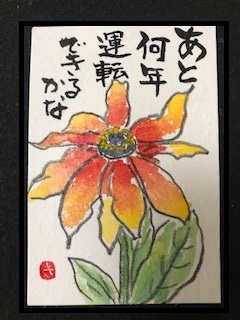 あと
何年
運転
できる
かな